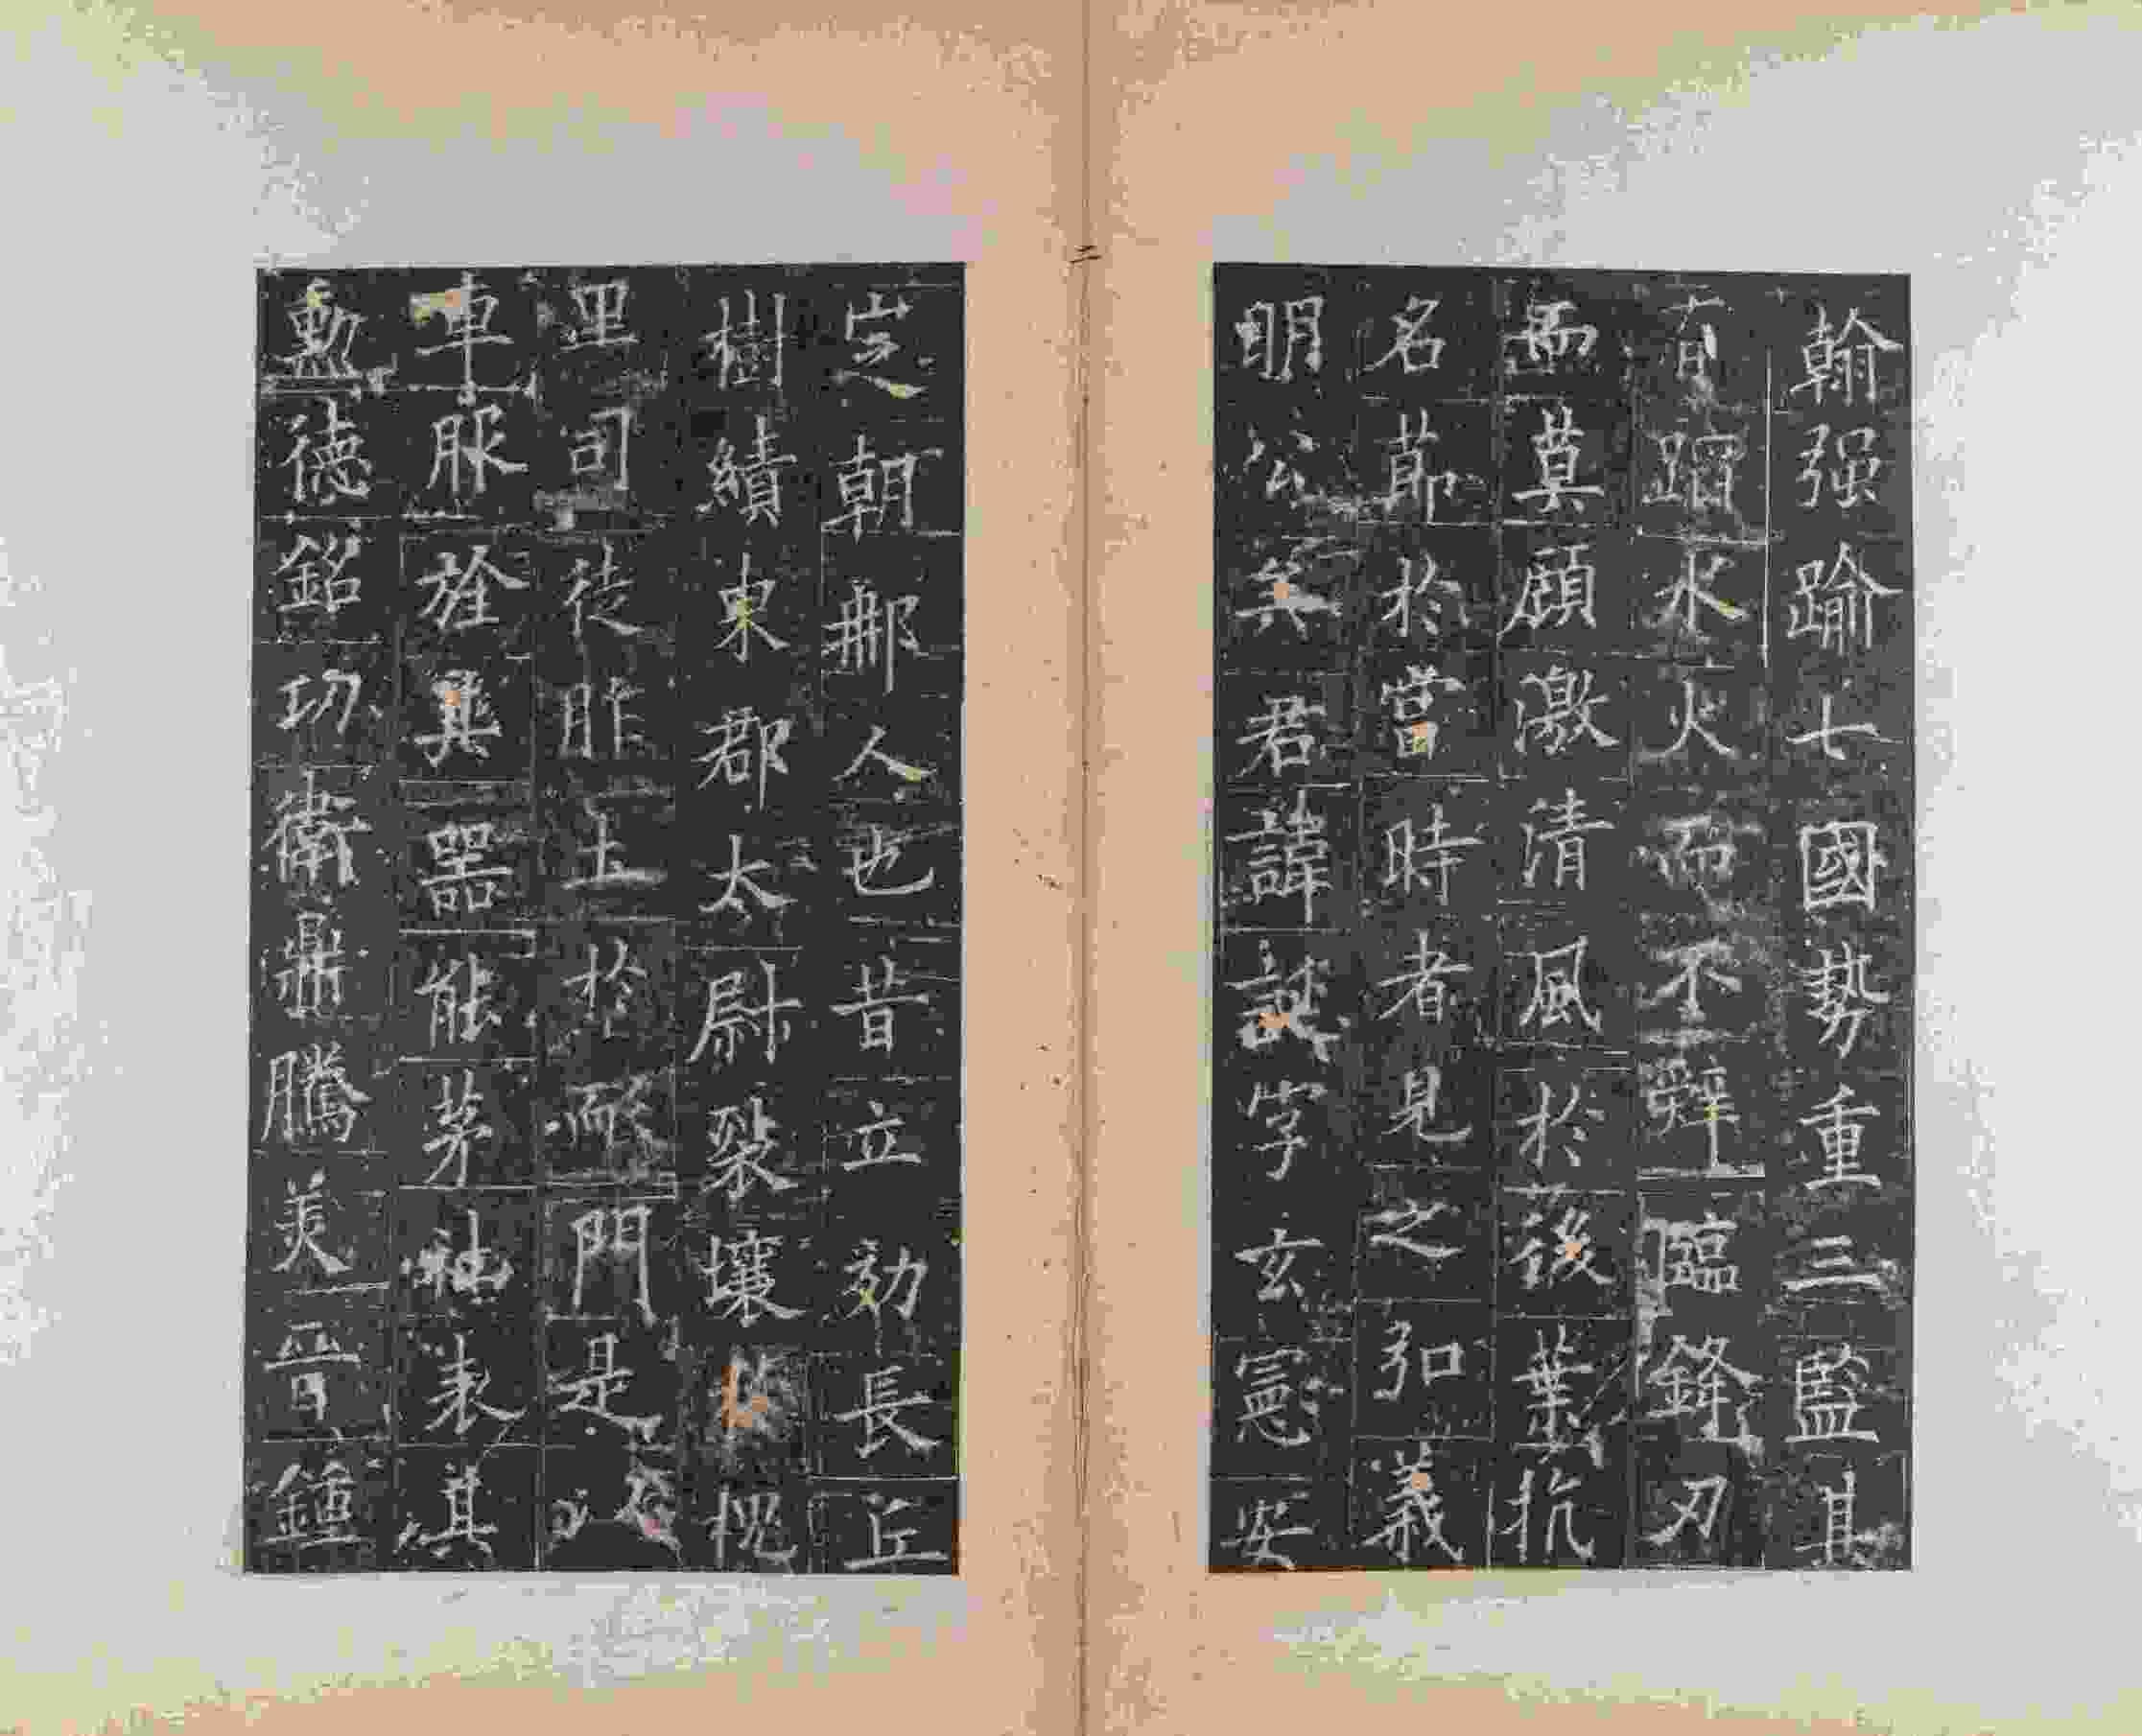 翰强踰七國勢重三監其
有蹈水火而不辭臨鋒刃
而莫顧激清風於後葉抗
名節於當時者見之弘義
明公矣君諱誕字玄憲安
二
定朝那人也昔立効長丘
樹績東郡太尉裂壤槐
里司徒胙土於耏門是以
車服旌其器能茅社表其
勲德銘功衛鼎騰美晉鍾